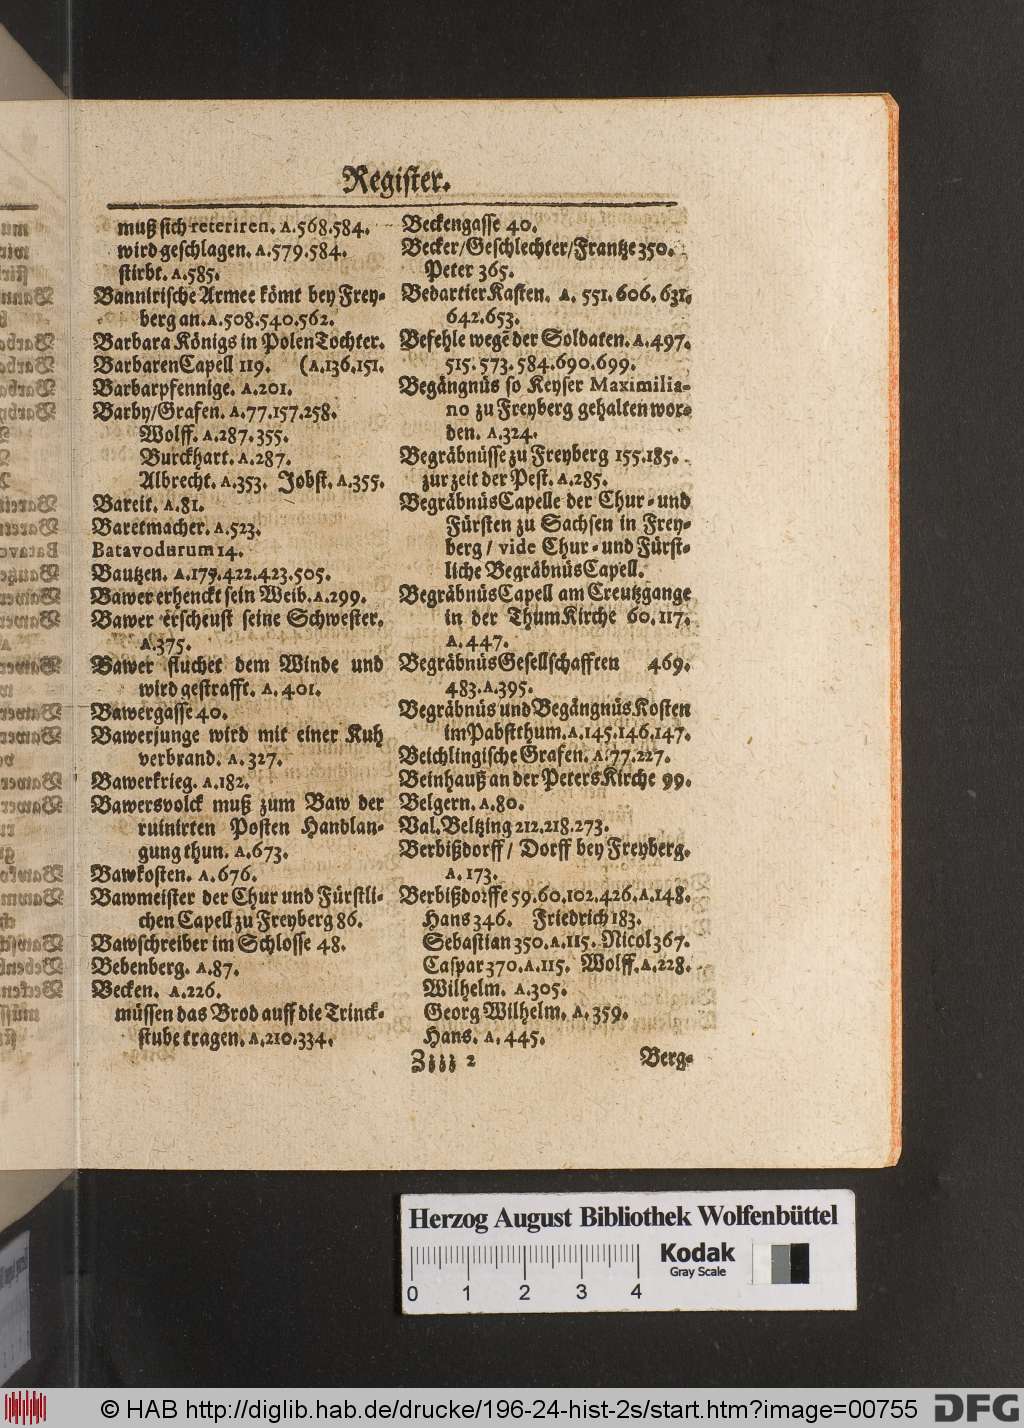 Register.
muß sich reteriren. A.568.584.
wird geschlagen. A.579.584.
stirbt. A.585.
Bannirische Armee kömt bey Frey-
berg an. A.508.540.562.
Barbara Königs in Polen Tochter.
Barbaren Capell 119. (A.136.151.
Barbarpfennige. A.201.
Barby/Grafen. A.77.157.258.
Wolff. A.287.355.
Burckhart. A.287.
Albrecht. A.353. Jobst. A.355.
Bareit. A.81.
Baretmacher. A.523.
Batavodurum 14.
Bautzen. A.175.422.423.505.
Bawer erhenckt sein Weib. A.299.
Bawer erscheust seine Schwester.
A.375.
Bawer fluchet dem Winde und
wird gestrafft. A.401.
Bawergasse 40.
Bawerjunge wird mit einer Kuh
verbrand. A.327.
Bawerkrieg. A.182.
Bawersvolck muß zum Baw der
ruinirten Posten Handlan-
gung thun. A.673.
Bawkosten. A.676.
Bawmeister der Chur und Fürstli-
chen Capell zu Freyberg 86.
Bawschreiber im Schlosse 48.
Bebenberg. A.87.
Becken. A.226.
müssen das Brod auff die Trinck-
stube tragen. A.210.334.
Beckengasse 40.
Becker/Geschlechter/Frantze 350.
Peter 365.
Bedartier Kasten. A. 551.606.631.
642.653.
Befehle wegē der Soldaten. A.497.
515.573.584.690.699.
Begängnüs so Keyser Maximilia-
no zu Freyberg gehalten wor-
den. A.324.
Begräbnüsse zu Freyberg 155.185.
zur zeit der Pest. A.285.
BegräbnüsCapelle der Chur- und
Fürsten zu Sachsen in Frey-
berg / vide Chur- und Fürst-
liche BegräbnüsCapell.
BegräbnüsCapell am Creutzgange
in der ThumKirche 60.117.
A.447.
BegräbnüsGesellschafften 469.
483.A.395.
Begräbnüs und Begängnüs Kosten
im Pabstthum. A.145.146.147.
Beichlingische Grafen. A.77.227.
Beinhauß an der PetersKirche 99.
Belgern. A.80.
Val. Beltzing 212.218.273.
Berbißdorff / Dorff bey Freyberg.
A.173.
Berbißdorffe 59.60.102.426.A.148.
Hans 346. Friedrich 183.
Sebastian 350.A.115. Nicol 367.
Caspar 370.A.115. Wolff. A.228.
Wilhelm. A.305.
Georg Wilhelm. A.359.
Hans. A.445.
Ziiii 2 Berg-
Herzog August Bibliothek Wolfenbüttel
Kodak
Gray Scale
0 1 2 3 4
© HAB http://diglib.hab.de/drucke/196-24-hist-2s/start.htm?image=00755
DFG